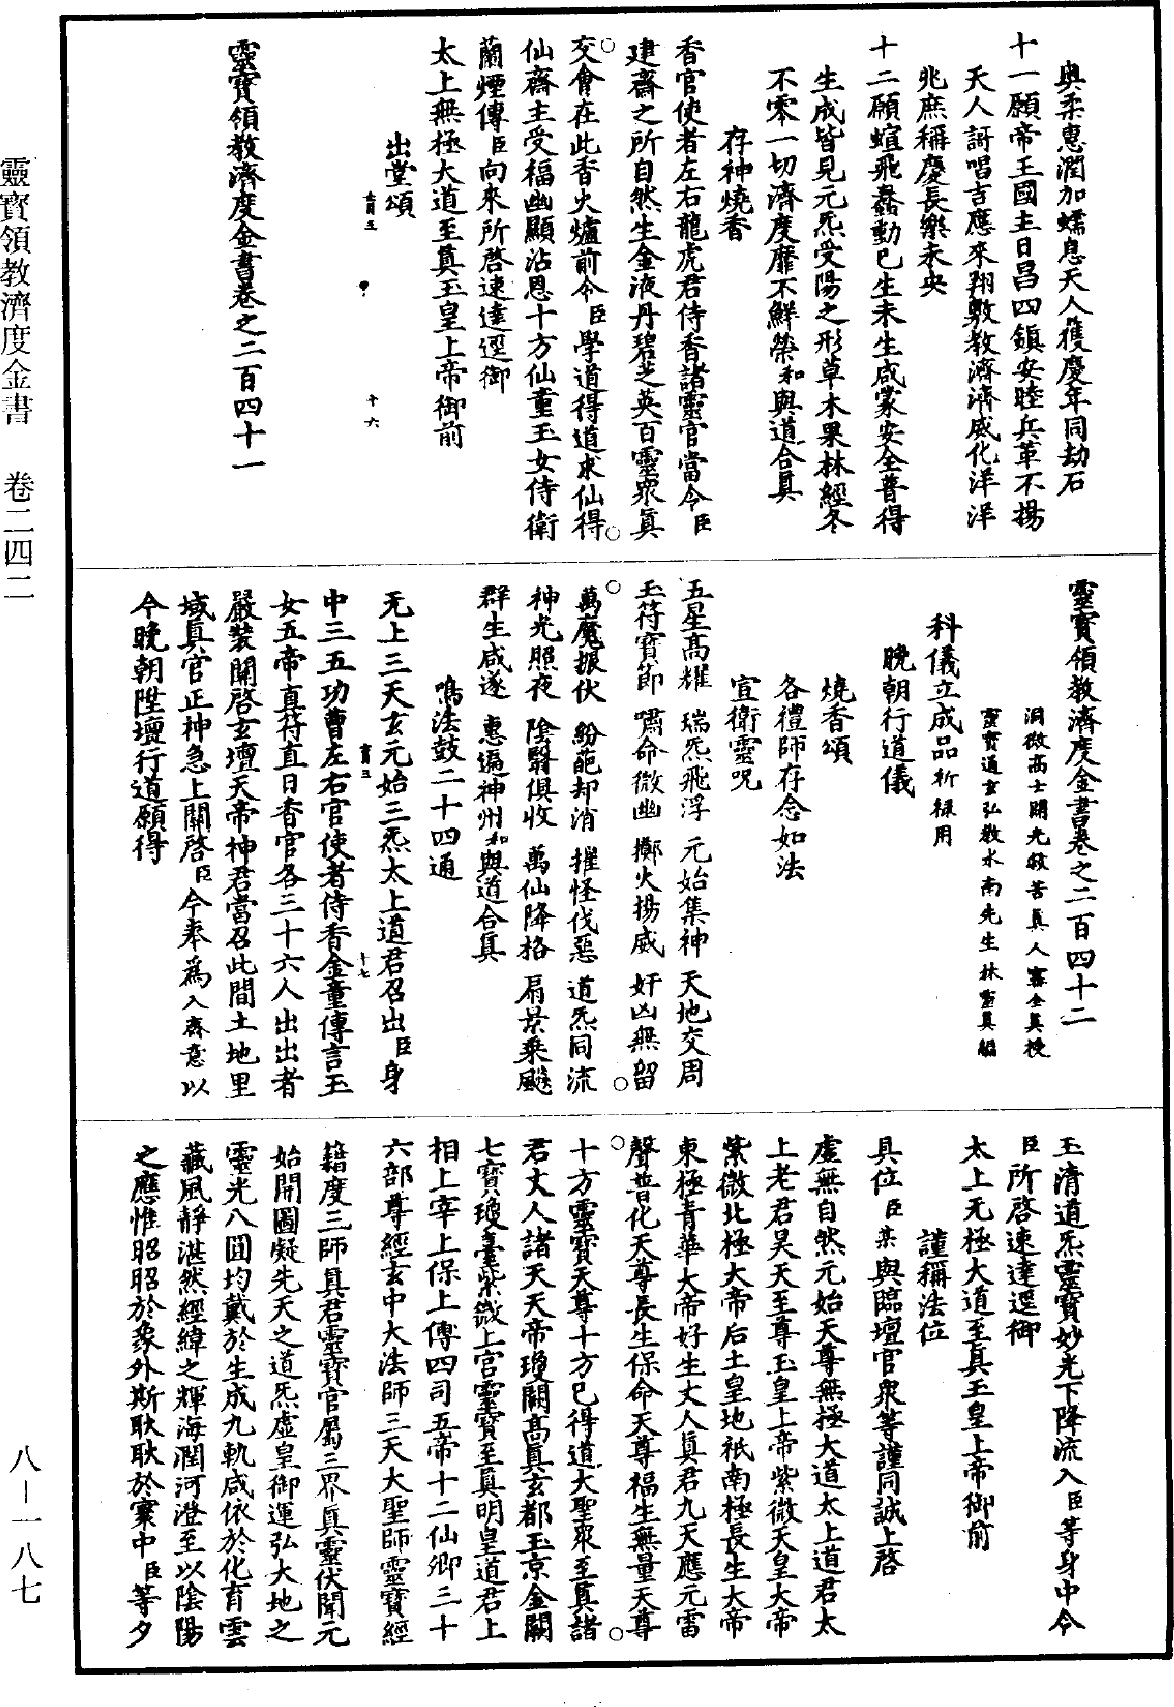 輿柔惠潤加蠕息天人獲慶年同劫石
十一願帝王國主日昌四鎮安睦兵革不揚
天人謌唱吉應來翔敷教濟濟威化洋洋
兆庶稱慶長樂未央
十二願蝖飛蠢動已生未生咸蒙安全普得
生成皆見元炁受陽之形草木果林經冬
不零一切濟度靡不鮮榮和與道合真
存神燒香
香官使者左右龍虎君侍香諸靈官當令臣
建齋之所自然生金液丹碧芝英百靈眾真
交會在此香火爐前令臣學道得道求仙得
仙齋主受福幽顯沾恩十方仙童玉女侍衛
蘭煙傳臣向來所啓速達逕御
太上無極大道至真玉皇上帝御前
出堂頌
十六
靈寶領教濟度金書卷之二百四十一
靈寶領教濟度金書卷之二百四十二
洞微高士開光救苦真人甯全真授
靈寶通玄弘教水南先生林靈真編
科儀立成品祈禳用
晚朝行道儀
燒香頌
各禮師存念如法
宣衛靈呪
五星高耀 瑞炁飛浮 元始集神 天地交周
玉符寶節 嘯命微幽 擲火揚威 奸凶無留
萬魔振伏 紛葩却消 摧怪伐惡 道炁同流
神光照夜 陰翳俱收 萬仙降格 扇景乘飈
群生咸遂 惠遍神州和與道合真
鳴法鼓二十四通
无上三天玄元始三炁太上道君召出臣身
中三五功曹左右官使者侍香金童傳言玉
女五帝真符直日香官各三十六人出出者
嚴裝關啓玄壇天帝神君當召此間土地里
域真官正神急上關啓臣今奉爲入齋意以
今晚朝陞壇行道願得
十七
玉清道炁靈寶妙光下降流入臣等身中令
臣所啓速達逕御
太上无極大道至真玉皇上帝御前
謹稱法位
具位臣某與臨壇官衆等謹同誠上啓
虛無自然元始天尊無極大道太上道君太
上老君昊天至尊玉皇上帝紫微天皇大帝
紫微北極大帝后土皇地祇南極長生大帝
東極青華大帝好生丈人真君九天應元雷
聲普化天尊長生保命天尊福生無量天尊
十方靈寶天尊十方已得道大聖眾至真諸
君丈人諸天天帝瓊闕高真玄都玉京金闕
七寶瓊臺紫微上宮靈寶至真明皇道君上
相上宰上保上傅四司五帝十二仙卿三十
六部尊經玄中大法師三天大聖師靈寶經
籍度三師真君靈寶官屬三界真靈伏聞元
始開圖凝先天之道炁虛皇御運弘大地之
靈光八圓均戴於生成九軌咸依於化育雲
藏風靜湛然經緯之輝海潤河澄至以陰陽
之應惟昭昭於象外斯耿耿於寰中臣等夕
靈寶領教濟度金書 卷二四二
八—一八七